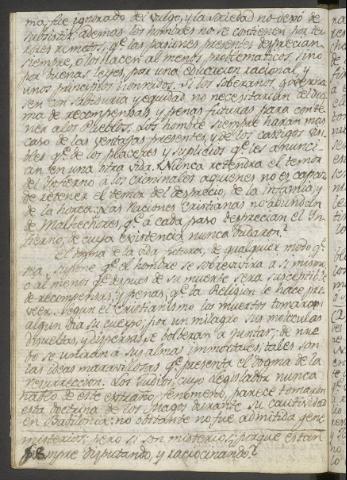 ma, fue ignorado del Vulgo, y la Sociedad no dexó de
subsistir. Ademas los hombres no se contienen por te-
mores remotos, qe. las pasiones presentes desprecian
siempre, o los hacen al menos, problematicos, sino
por buenas Leyes, por una educacion racional, y
unos principios honrrados. Si los Soberanos governa-
sen con sabiduria y equidad no necesitarian del Dog-
ma de recompensas, y penas futuras para conte-
ner a los Pueblos. Los hombres siempre haran mas
caso de las ventajas presentes, y de los castigos visi-
bles qe. de los placeres y suplicios qe. les anunci-
an en una otra vida. Nunca retendra el temor
del Infierno á los criminales a quienes no es capaz
de retener el temor del desprecio, de la infamia, y
de la horca. Las Naciones Cristianas no abundan
de Malhechores, qe. á cada paso desprecian el In-
fierno, de cuya existencia nunca dudaron?
El Dogma de la vida futura, de qualquier modo qe.
sea, supone qe. el hombre se sobrevivirá a si mismo
o al menos qe. despues de su muerte sera susceptible
de recompensas, y penas, qe. la Religion le hace pre-
veer. Segun el Cristianismo los muertos tomaran
algun dia su cuerpo; por un milagro las moleculas
disueltas, y dispersas se bolberan a juntar; de nue-
bo se uniran a sus almas immortales; tales son
las ideas maravillosas qe. presenta el dogma de la
resurreccion. Los Judios, cuyo Legislador nunca
hablo de este extraño fenomeno, parece tomaron
esta doctrina de los Magos durante su cautividad
en Babilonia; no obstante no fue admitida gene-
misterios; pero si son misterios, porque estan
siempre disputando, y raciocinando?
58